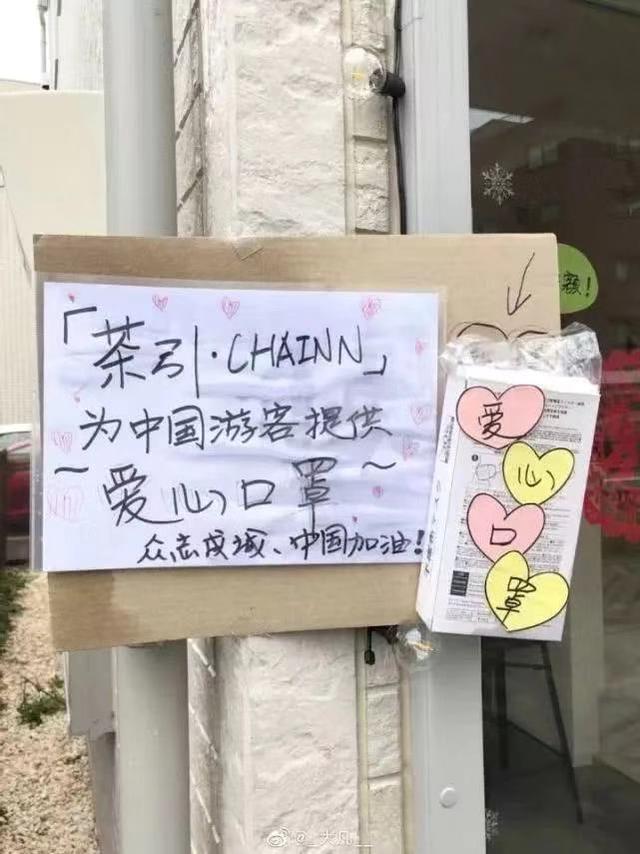 「茶引·CHAINN」
为中国游客提供
~爱心口罩~
众志成城、中国加油!
额!
爱
心
口
罩